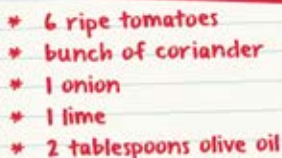 * 6 ripe tomatoes
* bunch of coriander
* 1 onion
* 1 lime
* 2 tablespoons olive oil